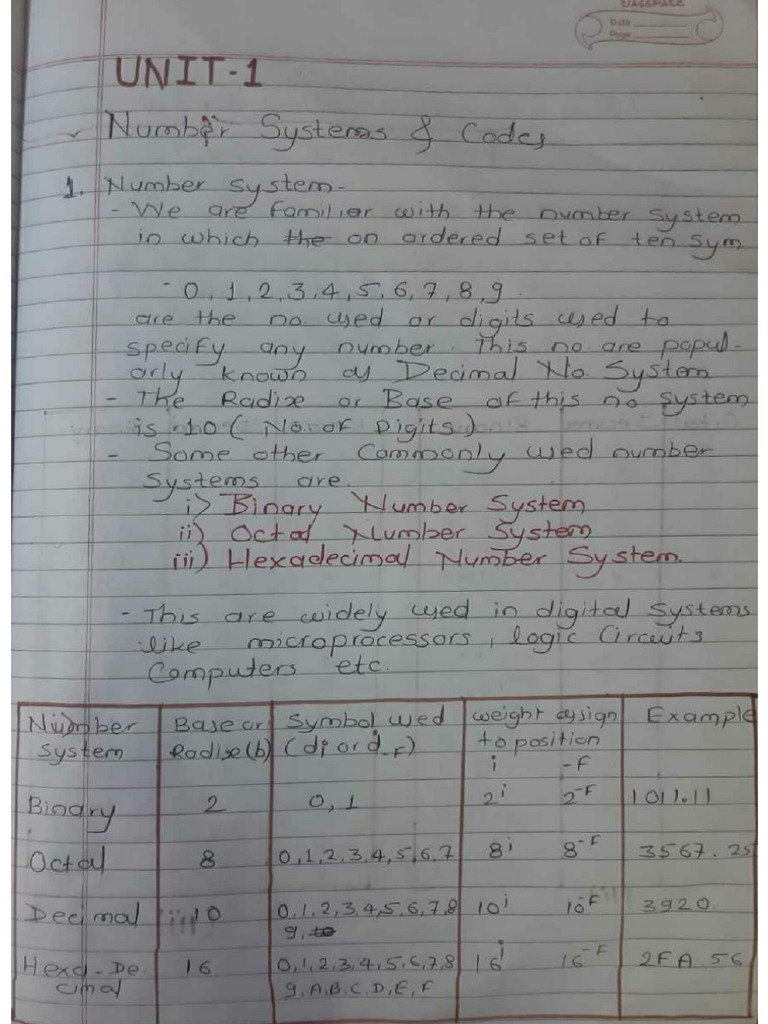 CLASSMATE
Date
Page
UNIT-1
Number Systems & Codes
1. Number system-
- We are familier with the number system
in which the an ordered set of ten sym
- 0, 1, 2, 3, 4, 5, 6, 7, 8, 9.
are the no. used or digits used to
specify any number. This no. are popul-
arly known as Decimal No. System
- The Radix or Base of this no system
is 10 ( No. of Digits )
- Some other Commonly used number
Systems are.
i) Binary Number System
ii) Octal Number System
iii) Hexadecimal Number System.
- This are widely used in digital systems
like microprocessors, logic Circuits
Computers etc.
Number System | Base or Radix (b) | Symbol used (di or d-F) | weight assign to position i -F | Example
Binary | 2 | 0, 1 | 2^i 2^-F | 1011.11
Octal | 8 | 0,1,2,3,4,5,6,7 | 8^i 8^-F | 3567.25
Decimal | 10 | 0,1,2,3,4,5,6,7,8 9, to | 10^i 10^-F | 3920.
Hexa-De cimal | 16 | 0,1,2,3,4,5,6,7,8 9,A,B,C,D,E,F | 16^i 16^-F | 2FA.56